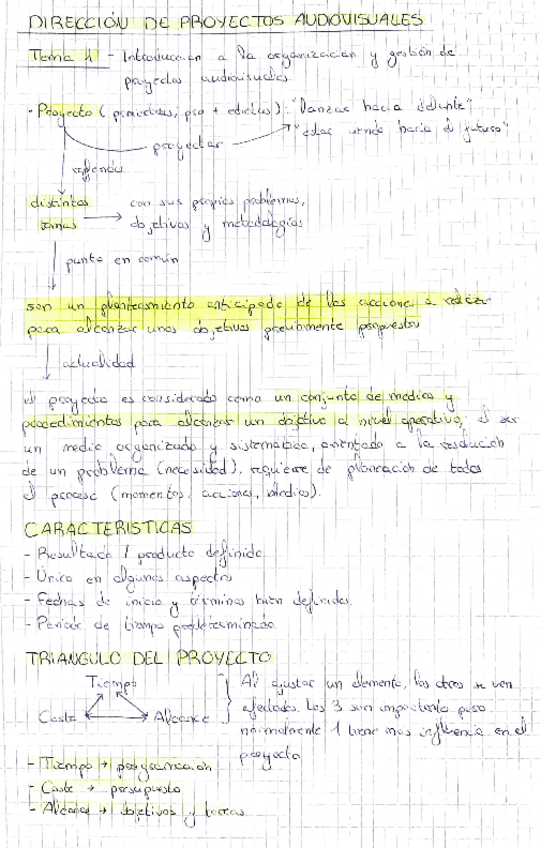 DIRECCIÓN DE PROYECTOS AUDIOVISUALES
Tema 1 - Introducción a la organización y gestión de
proyectos audiovisuales
- Proyecto ( pro + ): "lanzar hacia delante"
proyectar "estar yendo hacia el futuro"
distintos con sus propios problemas,
temas objetivos y metodologías
punto en común
son un planteamiento anticipado de las acciones a realizar
para alcanzar unos objetivos previamente propuestos
actualidad
el proyecto es considerado como un conjunto de medios y
procedimientos para alcanzar un objetivo a nivel operativo, al ser
un medio organizado y sistemático, orientado a la resolución
de un problema (necesidad), requiere de planeación de todo
el proceso (momentos, acciones, ).
CARACTERISTICAS
- Resultado / producto definido
- Único en algunos aspectos
- Fechas de inicio y término bien definidas.
- Periodo de tiempo predeterminado.
TRIANGULO DEL PROYECTO
Tiempo
Coste Alcance
Al ajustar un elemento, los otros se ven
afectados. Los 3 son importantes pero
normalmente 1 tiene más influencia en el
proyecto
- Tiempo → programación
- Coste → presupuesto
- Alcance → objetivos y tareas